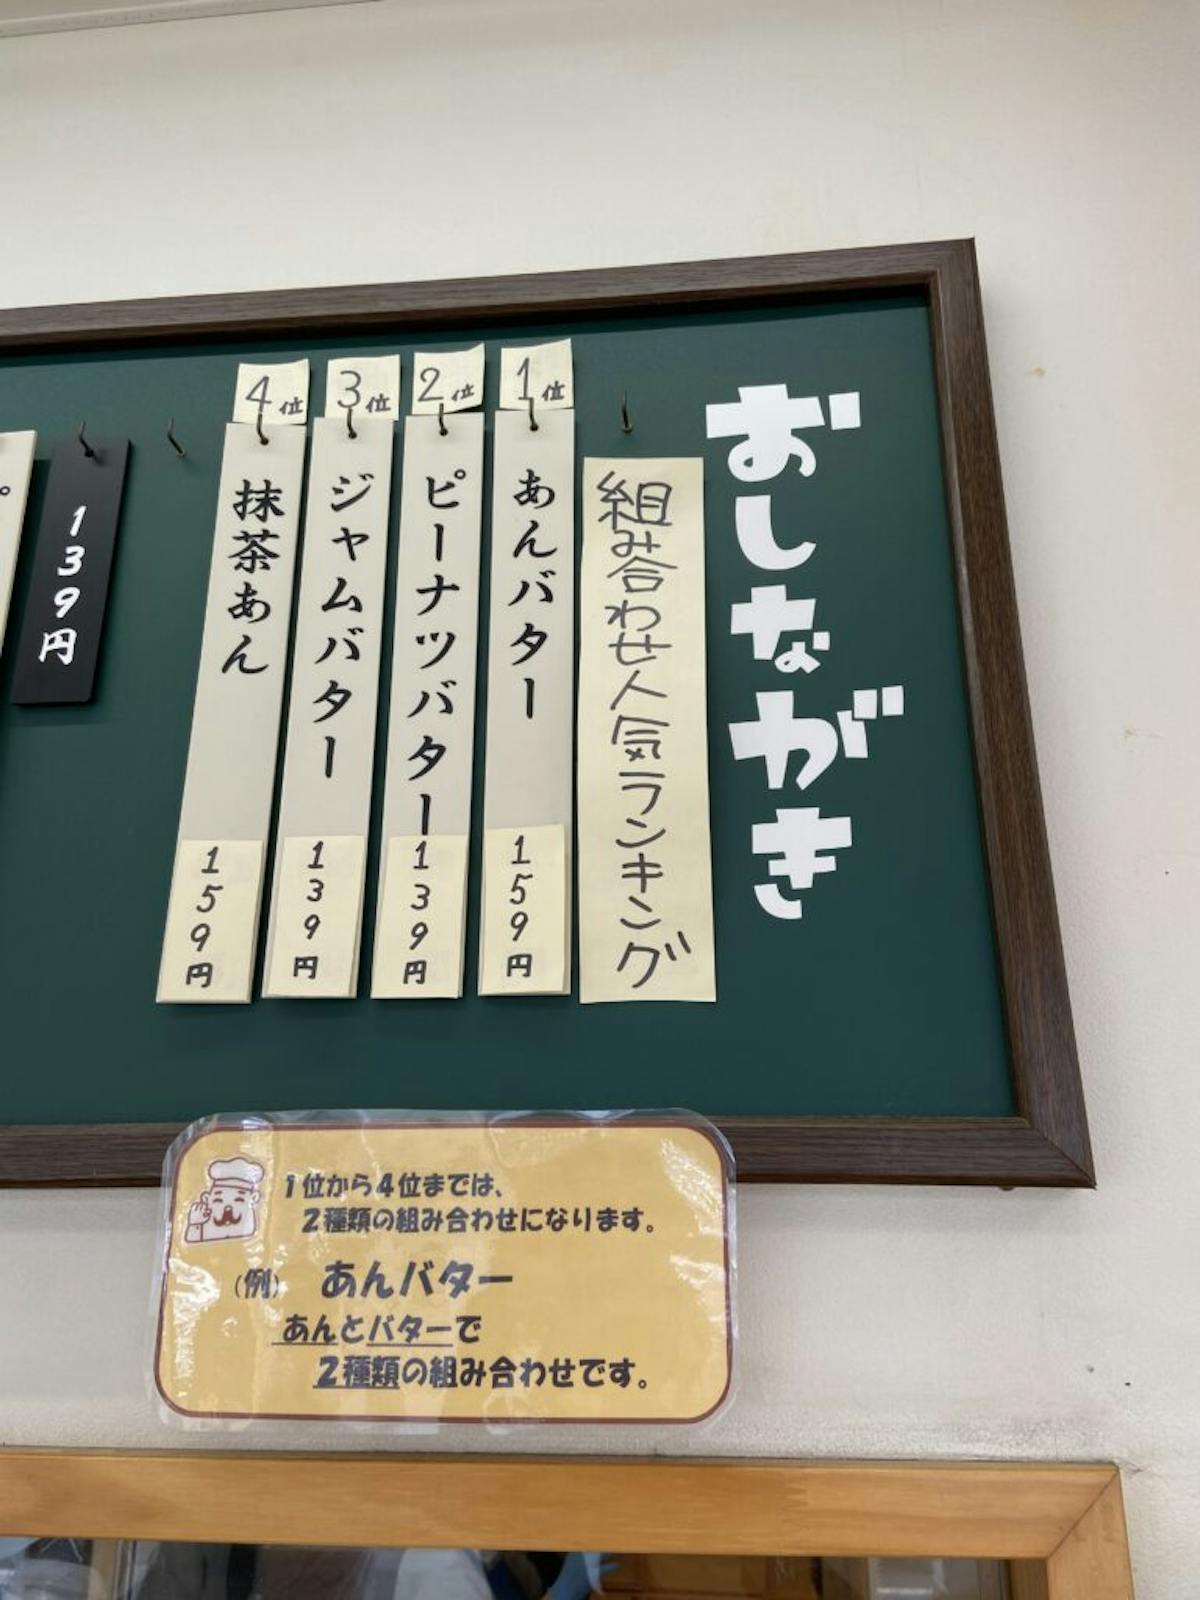 おしながき
組み合わせ人気ランキング
1位
あんバター
159円
2位
ピーナツバター
139円
3位
ジャムバター
139円
4位
抹茶あん
159円
139円
1位から4位までは、
2種類の組み合わせになります。
(例) あんバター
あんとバターで
2種類の組み合わせです。